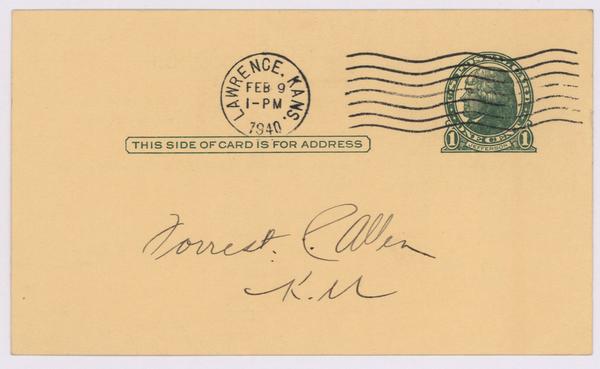 LAWRENCE, KANS.
FEB 9
1-PM
1940
THIS SIDE OF CARD IS FOR ADDRESS
1 JEFFERSON 1
Forrest. C. Allen
K.U